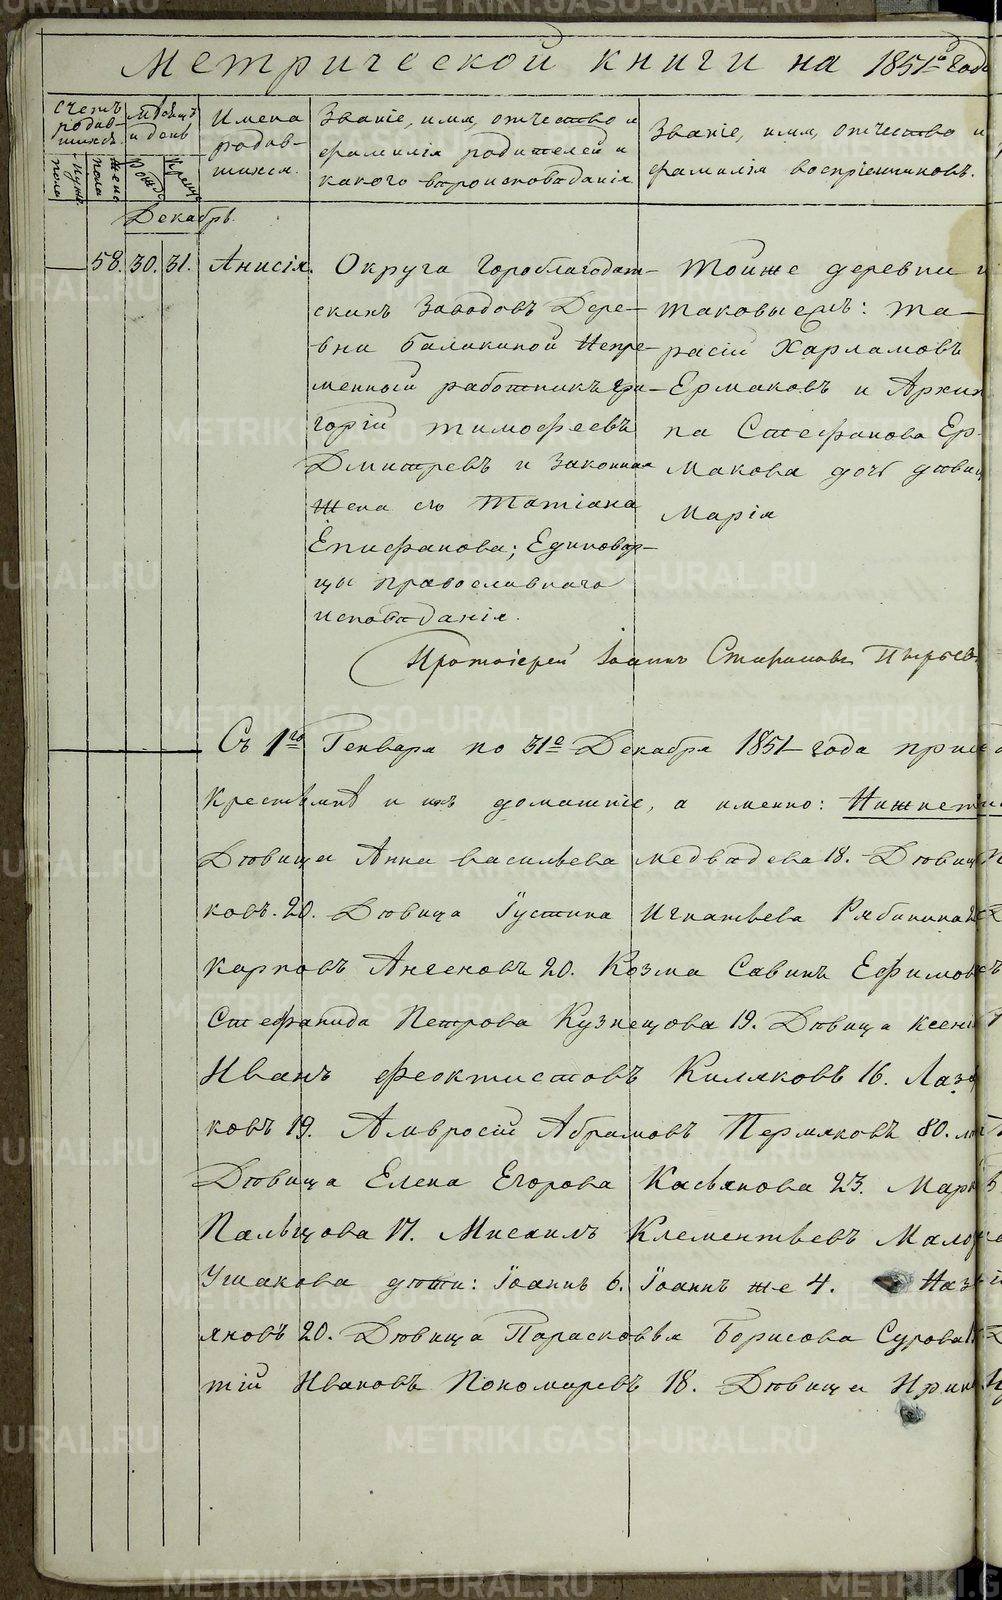 Метрической книги на 1851й годъ
Счетъ родив-шихся.
Мѣсяцъ и день
Имена родив-шихся.
Званіе, имя, отчество и фамилія родителей и какого вѣроисповѣданія
Званіе, имя, отчество и фамилія воспріемниковъ.
Муж: пола
Жен: пола
Рожд:
Крещ:
Декабрь.
58. 30. 31. Анисія.
Округа Гороблагодат-
скихъ Заводовъ Дере-
вни Балакиной Непре-
менной работникъ Гри-
горій тимофеевъ
Дмитревъ и законная
жена его Татіана
Епифанова; Единовѣр-
цы православнаго
исповѣданія.
Тойже деревни и
таковыежъ: Та-
расій Харламовъ
Ермаковъ и Архип-
па Стефанова Ер-
макова дочь дѣвица
Марія
Протоіерей Іоаннъ Стефановъ Пырьевъ
Съ 1го Генваря по 31е Декабря 1851 года
Крестьяне и ихъ домашніе, а именно:
Дѣвица Анна васильева медвѣдева 18. Дѣвица
ковъ. 20. Дѣвица Іустина Игнатьева Рябинина
карповъ Аксеновъ 20. Козма Савинъ Ефимовъ
Стефанида Петрова Кузнецова 19. Дѣвица Ксенія
Иванъ феоктистовъ Киляковъ 16.
ковъ 19. Амвросій Абрамовъ Пермяковъ 80.
Дѣвица Елена Егорова Касьянова 23.
Пальцова 17. Мисаилъ Клементьевъ
Ушакова дѣти: Іоаннъ 6. Іоаннъ же 4.
яковъ 20. Дѣвица Парасковья Борисова Сурова
тій Ивановъ Пономаревъ 18. Дѣвица
METRIKI.GASO-URAL.RU